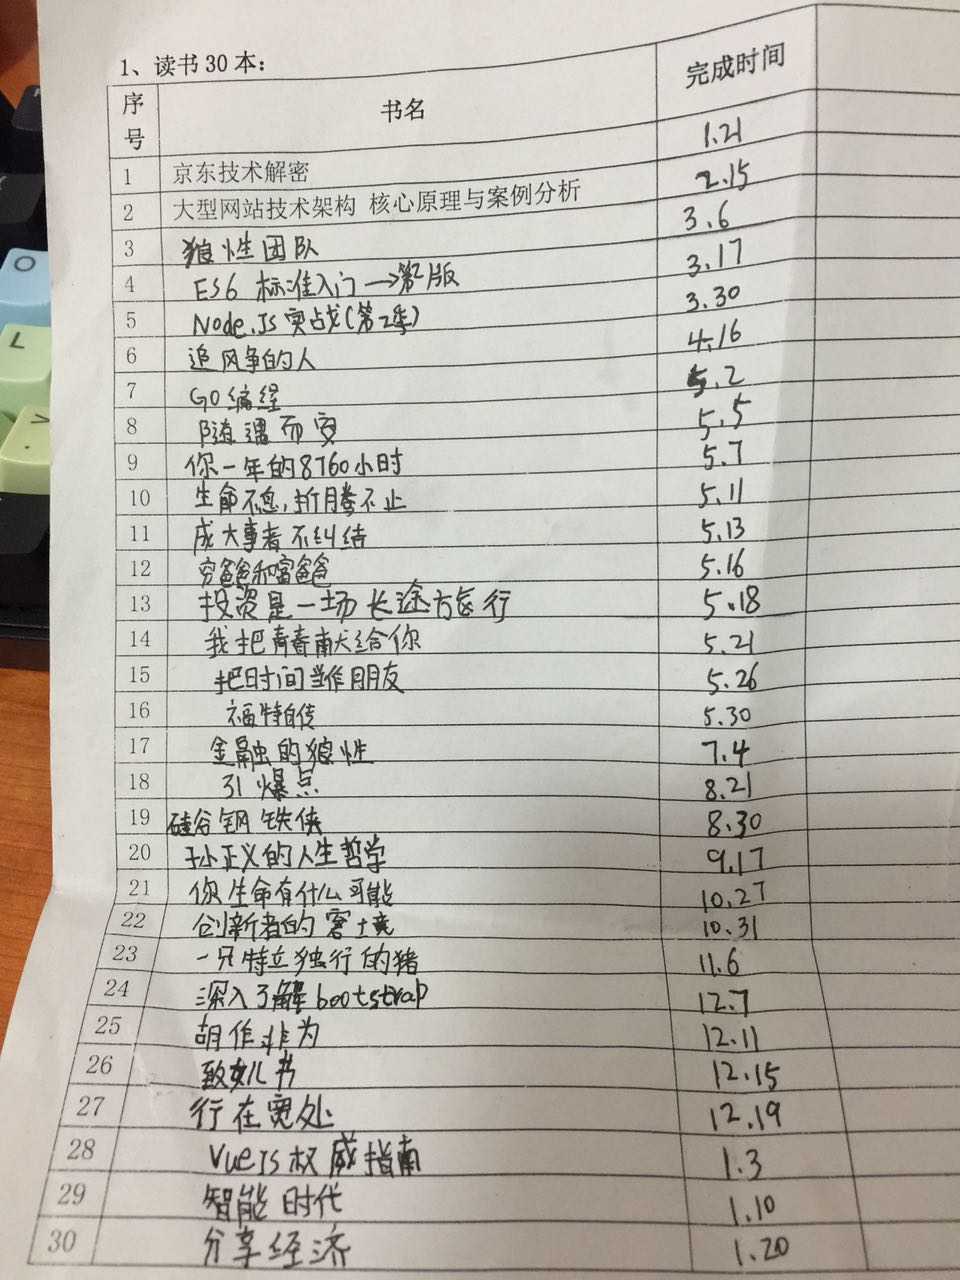 1、读书30本：
序号 书名 完成时间
1 京东技术解密 1.21
2 大型网站技术架构 核心原理与案例分析 2.15
3 狼性团队 3.6
4 ES6 标准入门→第2版 3.17
5 Node.JS实战(第2季) 3.30
6 追风筝的人 4.16
7 GO编程 5.2
8 随遇而安 5.5
9 你一年的8760小时 5.7
10 生命不息,折腾不止 5.11
11 成大事者不纠结 5.13
12 穷爸爸和富爸爸 5.16
13 投资是一场长途旅行 5.18
14 我把青春献给你 5.21
15 把时间当作朋友 5.26
16 福特自传 5.30
17 金融的狼性 7.4
18 引爆点 8.21
19 硅谷钢铁侠 8.30
20 孙正义的人生哲学 9.17
21 你生命有什么可能 10.27
22 创新者的窘境 10.31
23 一只特立独行的猪 11.6
24 深入了解bootstrap 12.7
25 胡作非为 12.11
26 致女儿书 12.15
27 行在宽处 12.19
28 VueJS权威指南 1.3
29 智能时代 1.10
30 分享经济 1.20
O
L
>
.